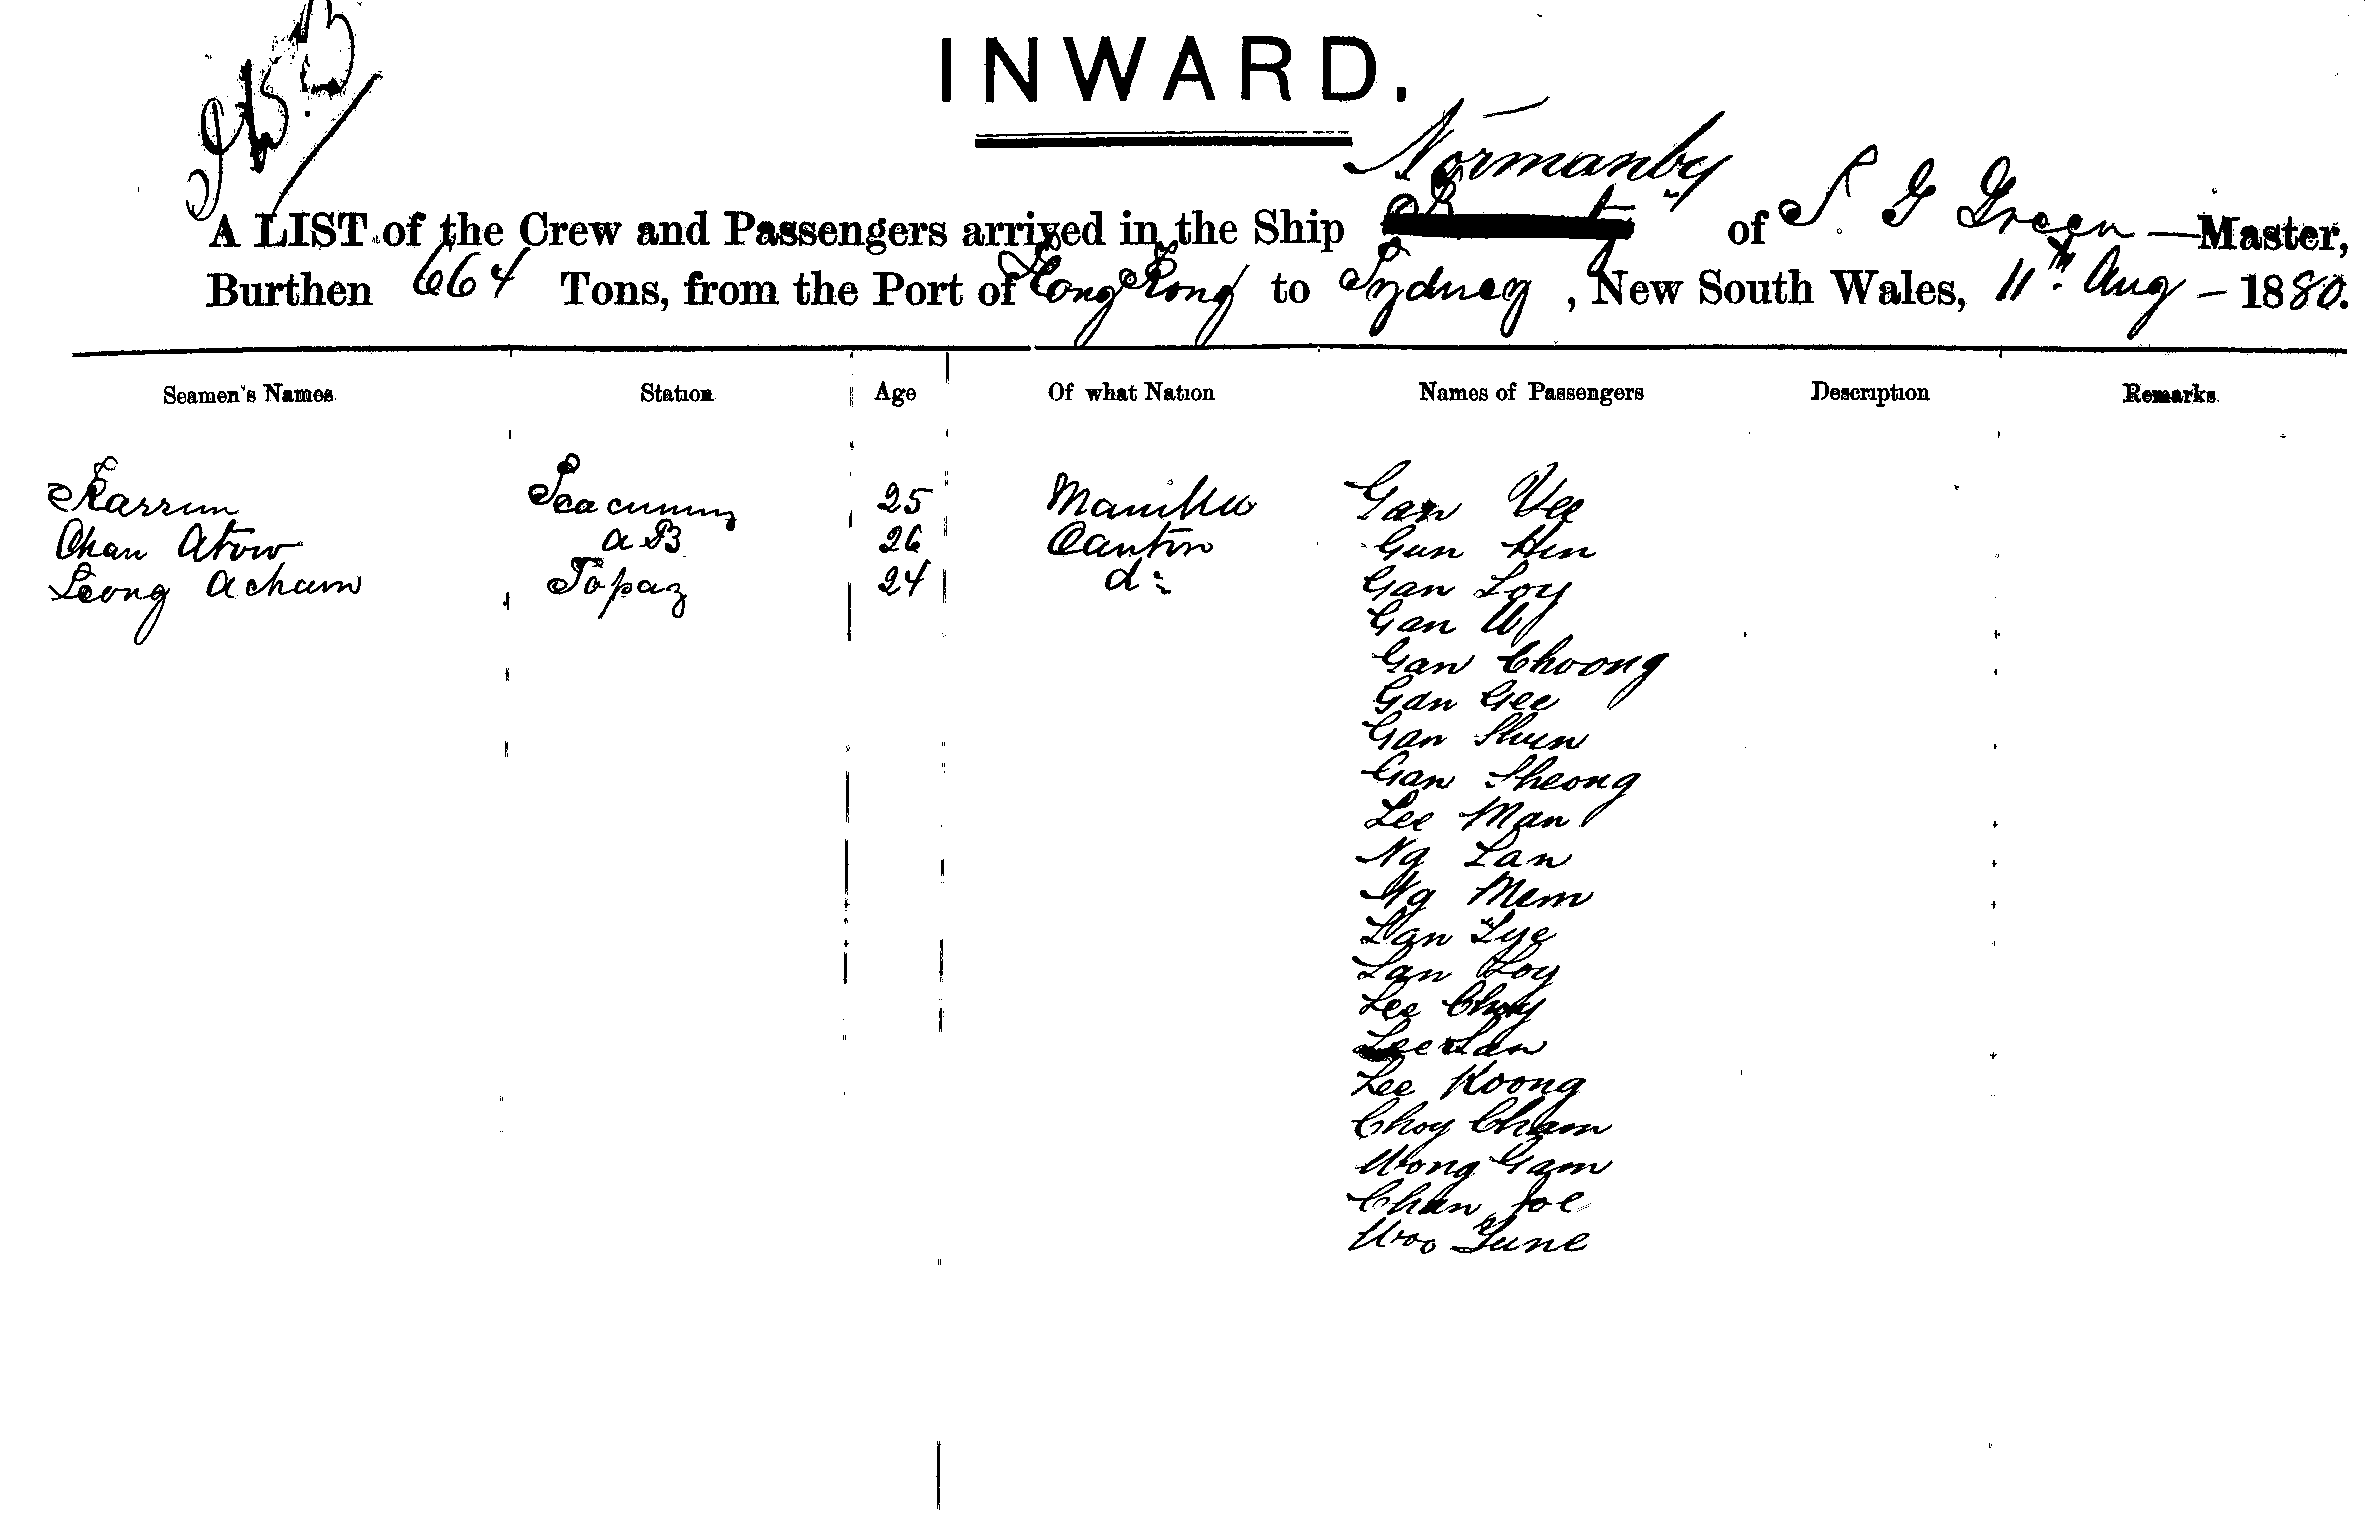 INWARD.
Normanby
A LIST of the Crew and Passengers arrived in the Ship of S. G Green — Master,
Burthen 664 Tons, from the Port of Hong Kong to Sydney, New South Wales, 11th Aug - 1880.
Seamen's Names Station Age Of what Nation Names of Passengers Description Remarks
Karrim Seacunny 25 Manilla Gan Vee
Chan Atow AB 26 Canton Gun Hin
Leong Acham Topaz 24 do Gan Loy
Gan
Gan Choong
Gan Gee
Gan Shun
Gan Sheong
Lee Man
Ng Lan
Ng Mem
Lan Lye
Lan Loy
Lee Choy
Lee Lan
Lee Koong
Choy Cham
Wong Gam
Chan Joe
Woo June